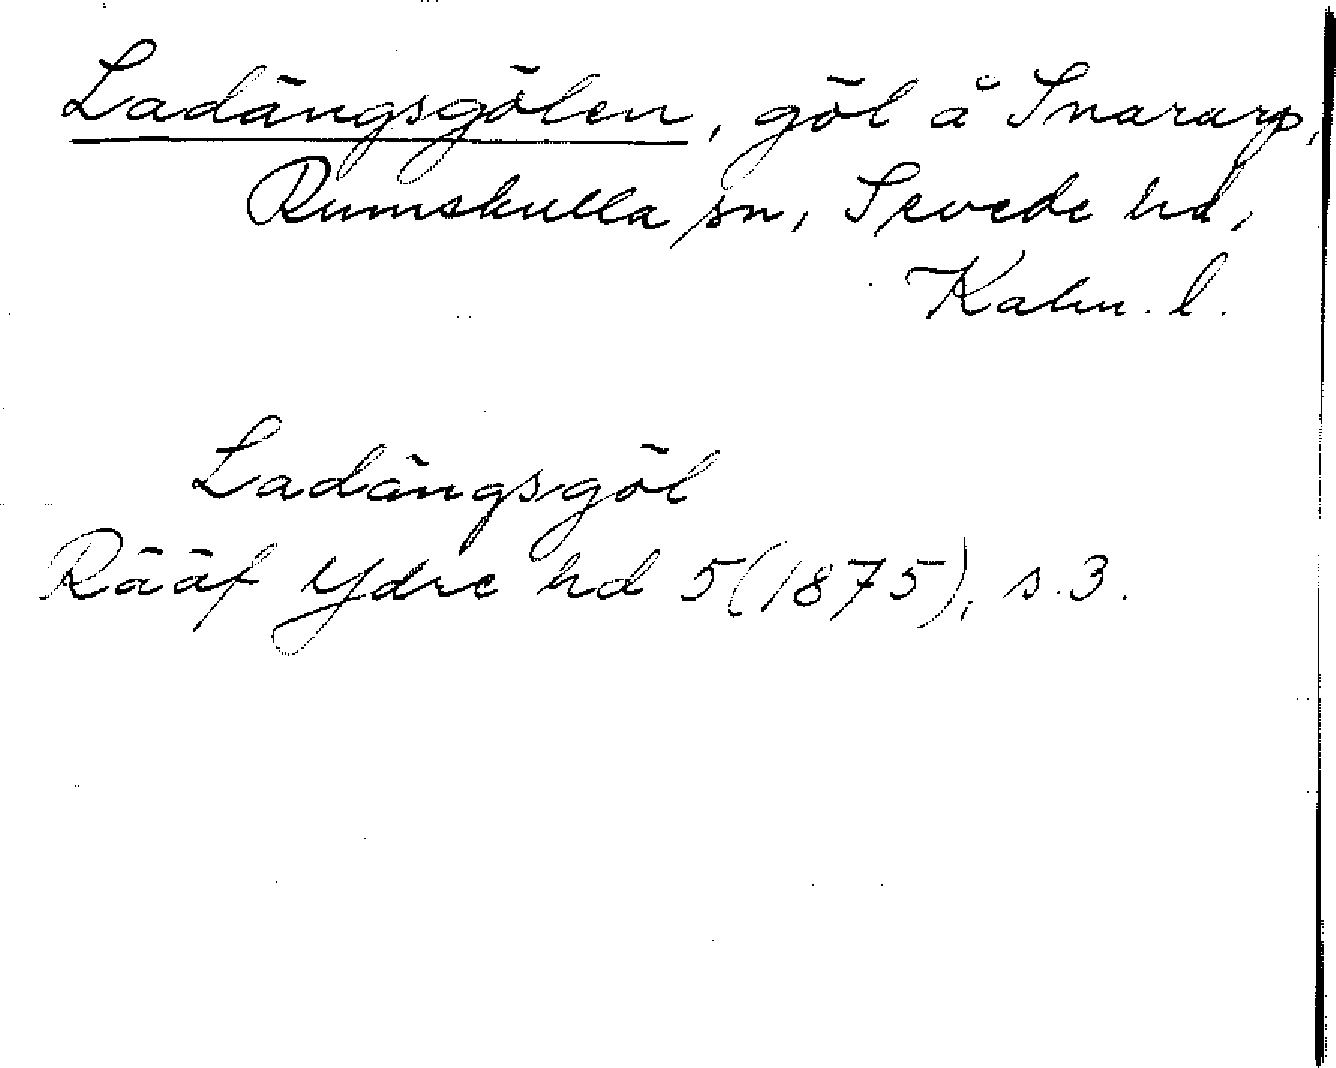 Ladängsgölen, göl å Snararp,
Rumskulla sn, Sevede hd,
Kalm. l.
Ladängsgöl
Rääf Ydre hd 5 (1875), s. 3.